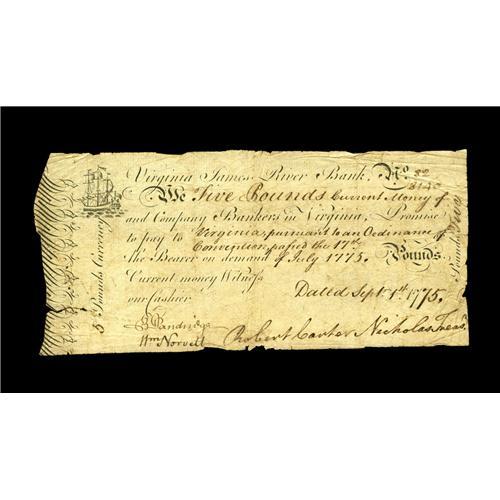 Virginia James River Bank, No 82
3140
We Five Pounds Current Money of
and Company Bankers in Virginia, Promise
to pay to Virginia, pursuant to an Ordinance of
Convention, passed the 17th
the Bearer on demand of July 1775. Pounds
Current money Witness
our Cashier Dated Sept 1st 1775.
B Dandridge
Wm Norvell Robert Carter Nicholas Treasr
Pounds Currency
Pounds Five